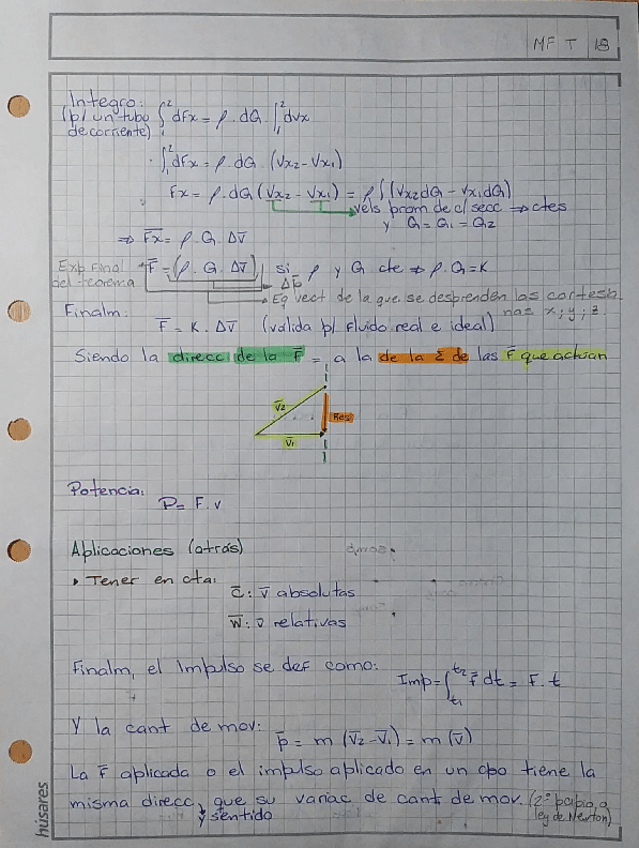 MF T 18
Integro:
(p/ un tubo de corriente) ∫₁² dFx = ρ . dQ . ∫₁² dvx
. ∫₁² dFx = ρ . dQ . (Vx2 - Vx1)
Fx = ρ . dQ (Vx2 - Vx1) = ρ ∫ (Vx2 dQ - Vx1 dQ)
vels prom de c/ secc ⇒ ctes
y Q = Q1 = Q2
⇒ F̅x = ρ . Q . ΔV̅
Exp final del teorema F̅ = (ρ . Q . ΔV̅) si ρ y Q cte ⇒ ρ . Q = K
Δp̅
Eq vect de la que se desprenden las cartesianas x; y; z.
Finalm:
F̅ = K . ΔV̅ (valida p/ fluido real e ideal)
Siendo la direcc de la F̅ = a la de la Σ de las F̅ que actúan
V̅2
Res
V̅1
Potencia:
P = F . v
Aplicaciones (otras)
• Tener en cta:
C̅ : v̅ absolutas
W̅ : v̅ relativas
Finalm, el Impulso se def como: Imp = ∫t1 t2 F̅ dt = F . t
Y la cant de mov: p̅ = m (V̅2 - V̅1) = m (v̅)
La F̅ aplicada o el impulso aplicado en un cpo tiene la
misma direcc y sentido que su variac de cant de mov. (2° ley de Newton)
húsares